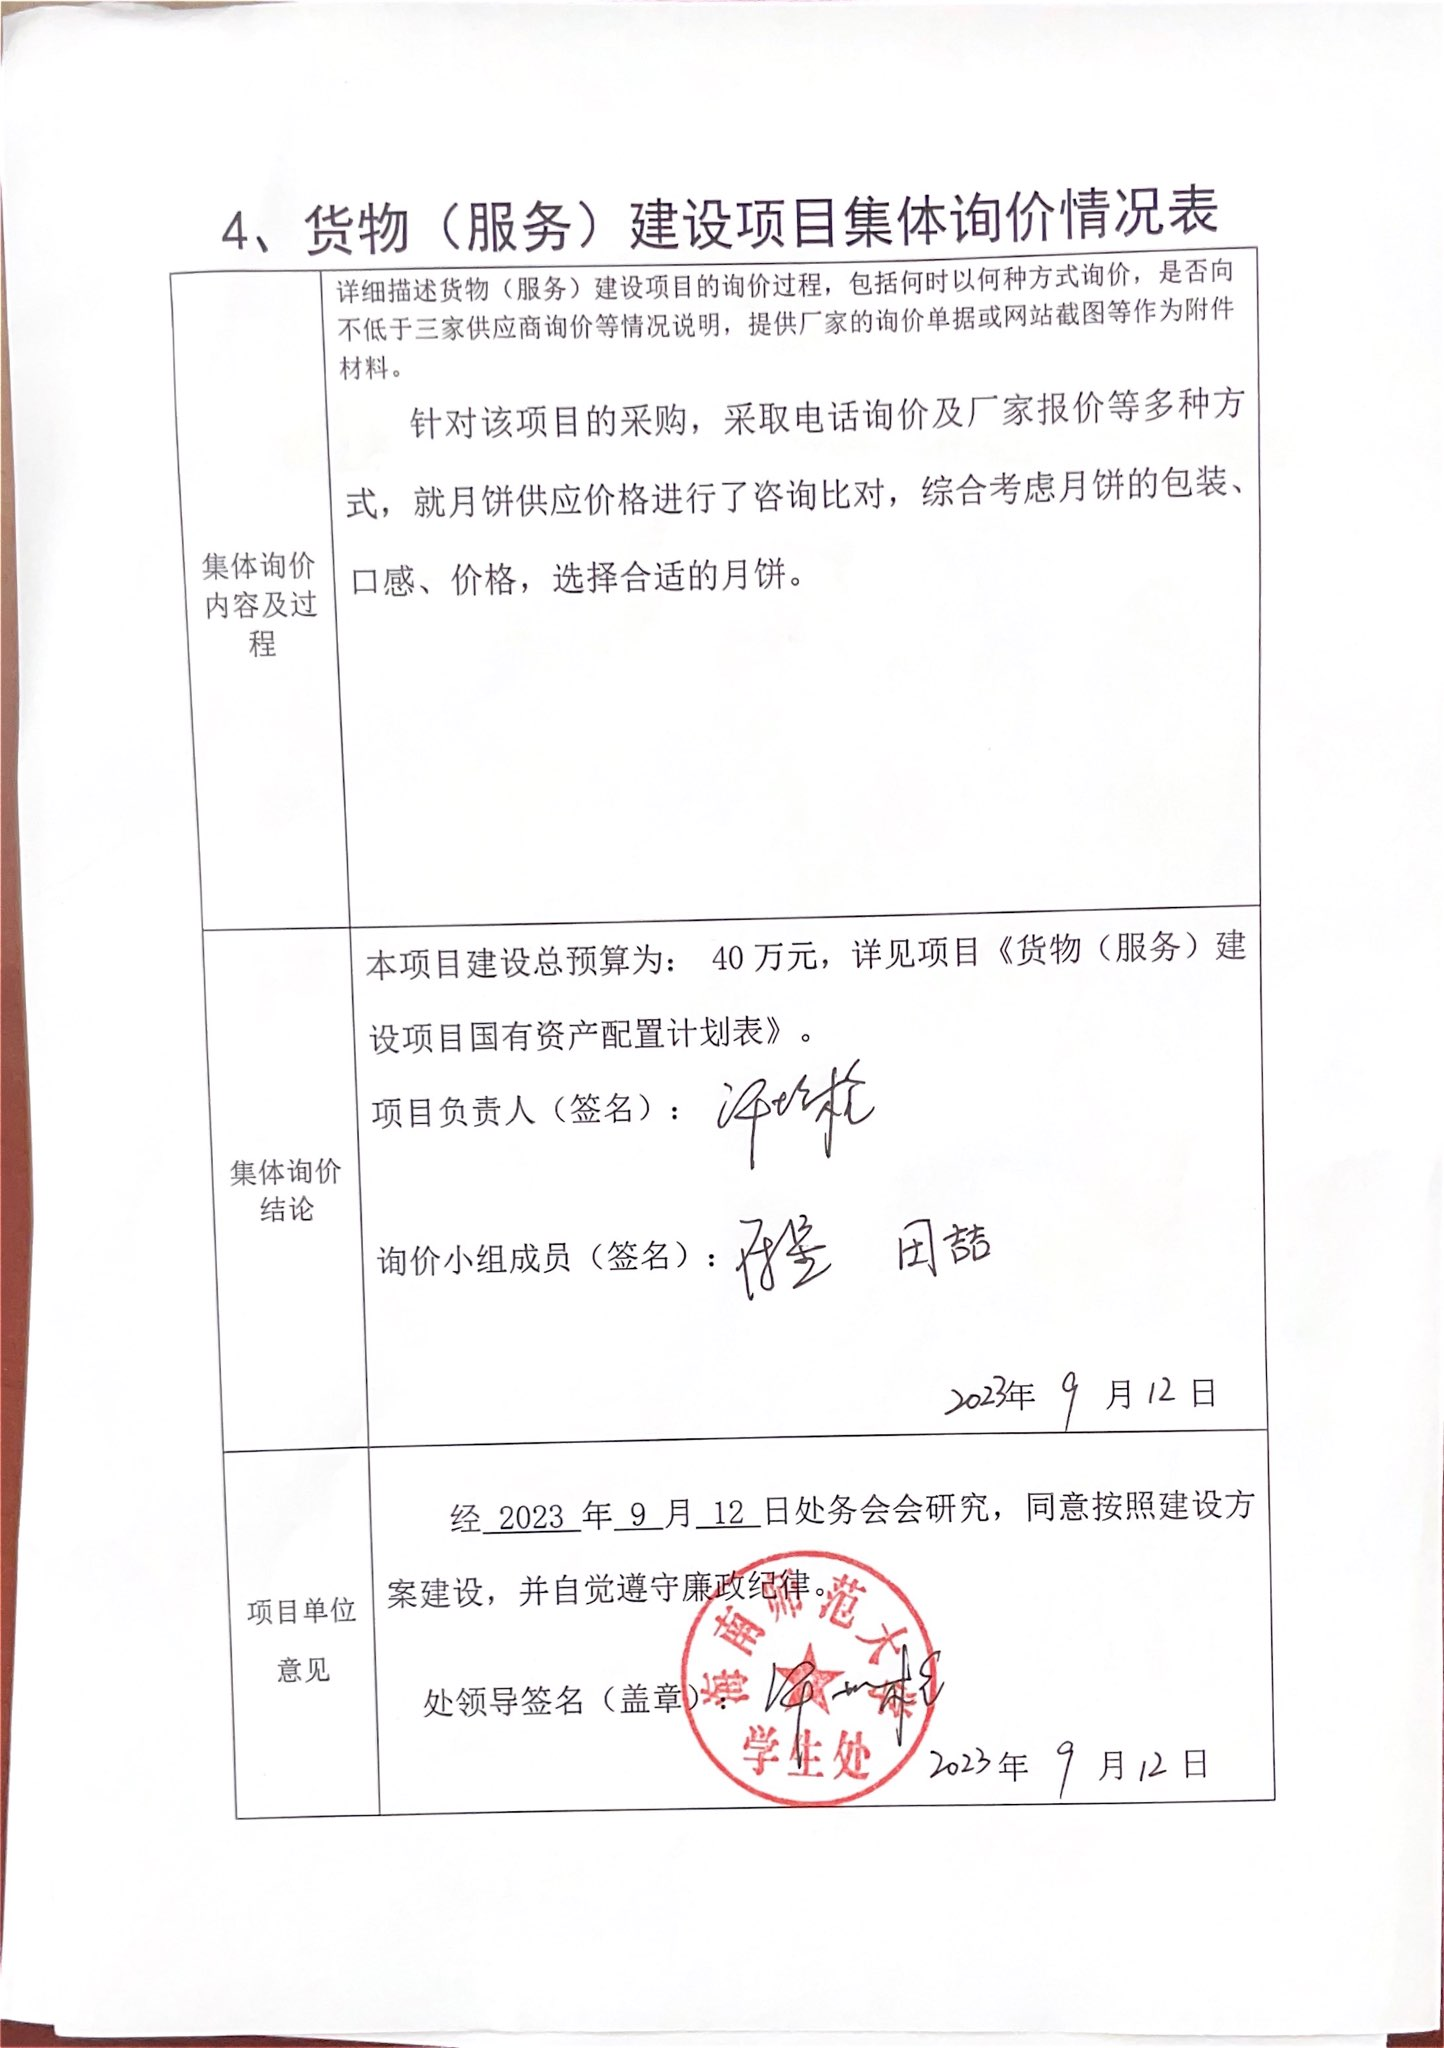 4、货物（服务）建设项目集体询价情况表
集体询价
内容及过
程
详细描述货物（服务）建设项目的询价过程，包括何时以何种方式询价，是否向
不低于三家供应商询价等情况说明，提供厂家的询价单据或网站截图等作为附件
材料。
针对该项目的采购，采取电话询价及厂家报价等多种方
式，就月饼供应价格进行了咨询比对，综合考虑月饼的包装、
口感、价格，选择合适的月饼。
集体询价
结论
本项目建设总预算为： 40 万元，详见项目《货物（服务）建
设项目国有资产配置计划表》。
项目负责人（签名）：
询价小组成员（签名）： 田喆
2023年 9 月 12 日
项目单位
意见
经 2023 年 9 月 12 日处务会会研究，同意按照建设方
案建设，并自觉遵守廉政纪律。
处领导签名（盖章）：
海南师范大学
学生处
2023年 9 月 12 日